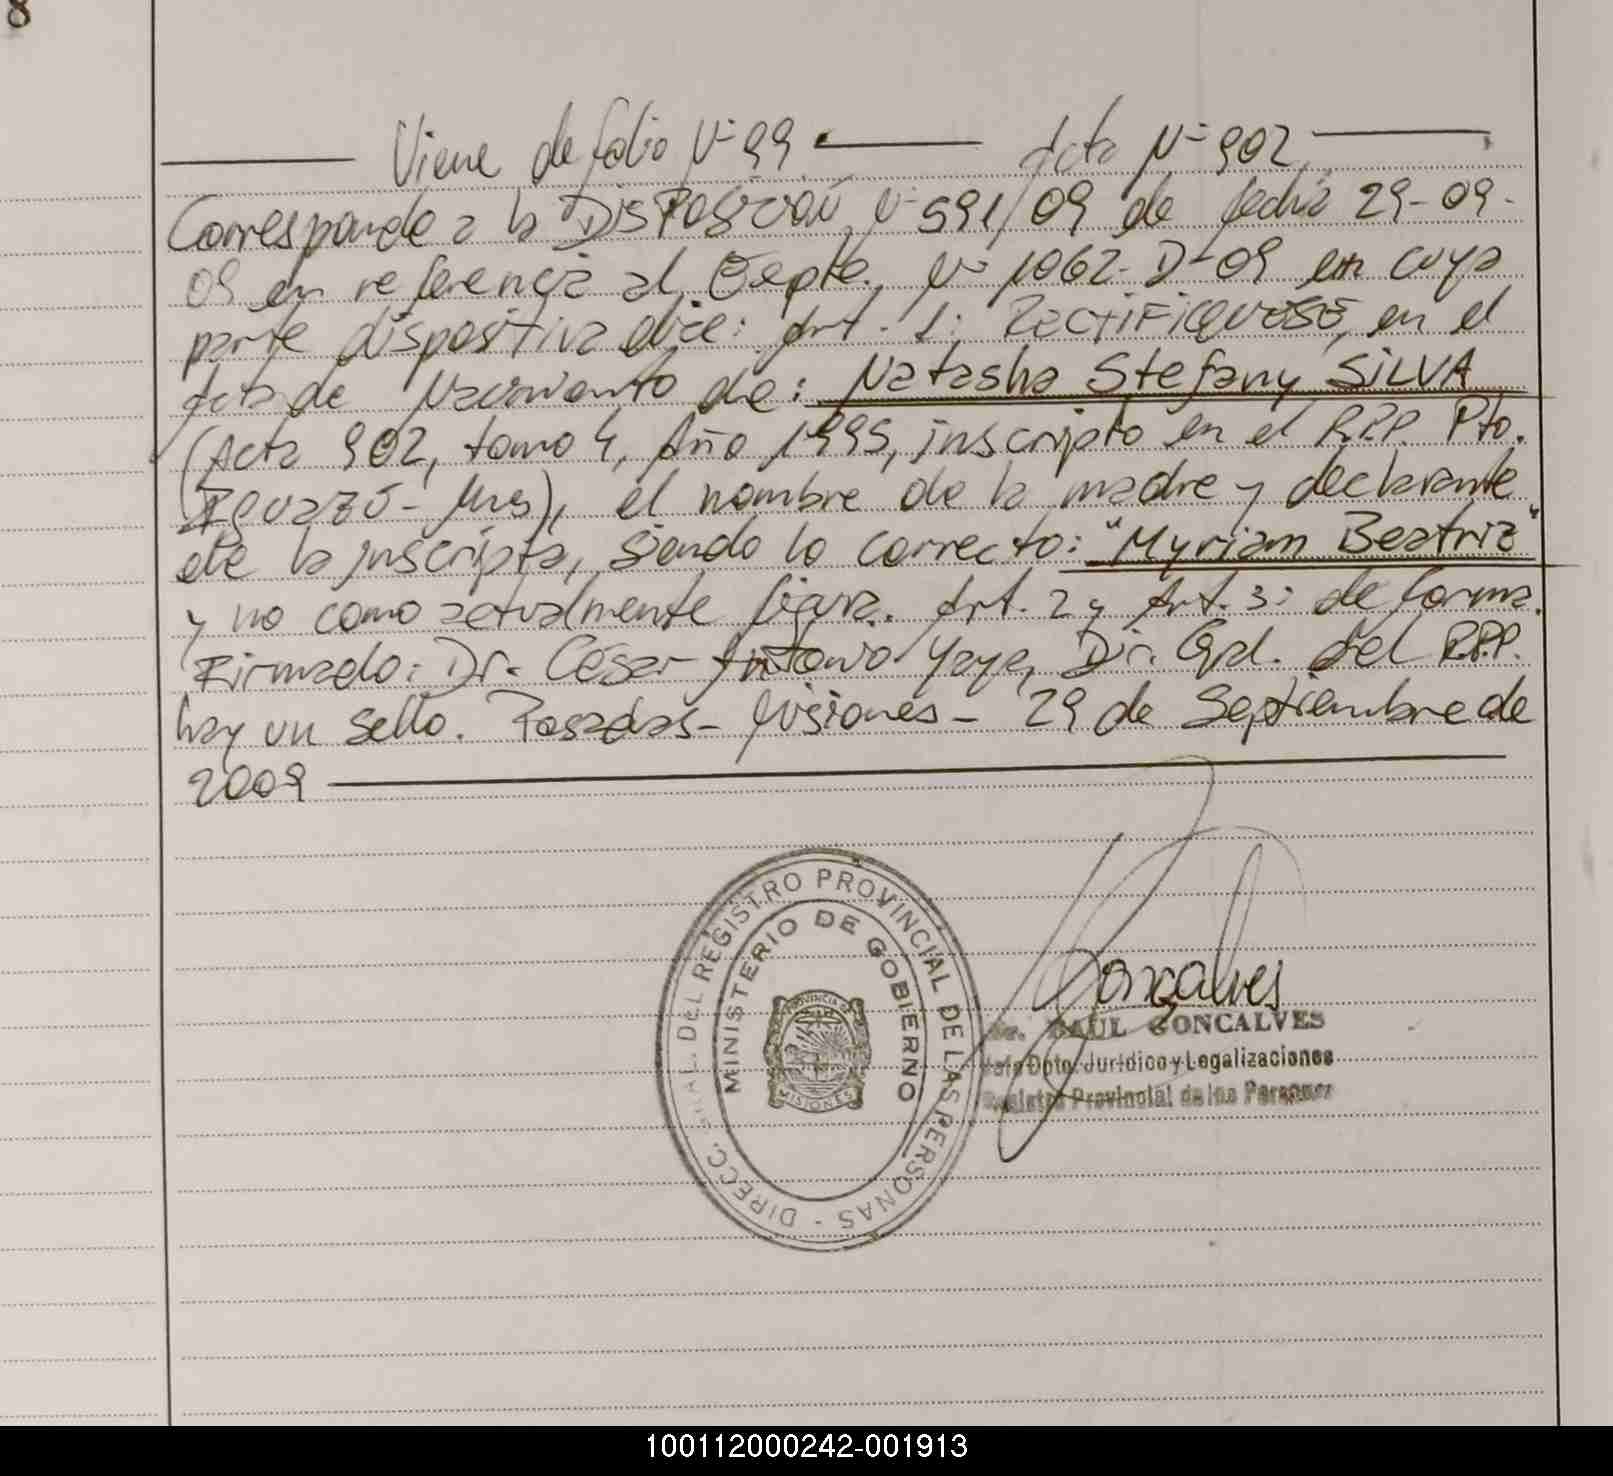 8
Viene de folio Nº 99 — Acta Nº 902,
Corresponde a la DISPOSICIÓN Nº 591/09 de fecha 29-09-
09 en referencia al Expte. Nº 1062-D-09 en cuya
parte dispositiva dice: Art. 1: RECTIFIQUESE, en el
Acta de Nacimiento de: Natasha Stefany SILVA
(Acta 902, tomo 4, Año 1995, inscripto en el R.P.P. Pto.
Iguazú - Mns), el nombre de la madre y declarante
de la inscripta, siendo lo correcto: "Myriam Beatriz"
y no como actualmente figura. Art. 2 y Art. 3: de forma.
Firmado: Dr. César Antonio Yaya, Dir. Gral. del R.P.P.
hay un sello. Posadas - Misiones - 29 de Septiembre de
2009
DIRECC. GRAL. DEL REGISTRO PROVINCIAL DE LAS PERSONAS -
MINISTERIO DE GOBIERNO
PROVINCIA DE
MISIONES
Gonçalves
Dr. SAUL GONCALVES
Jefe Dpto. Jurídico y Legalizaciones
Registro Provincial de las Personas
100112000242-001913